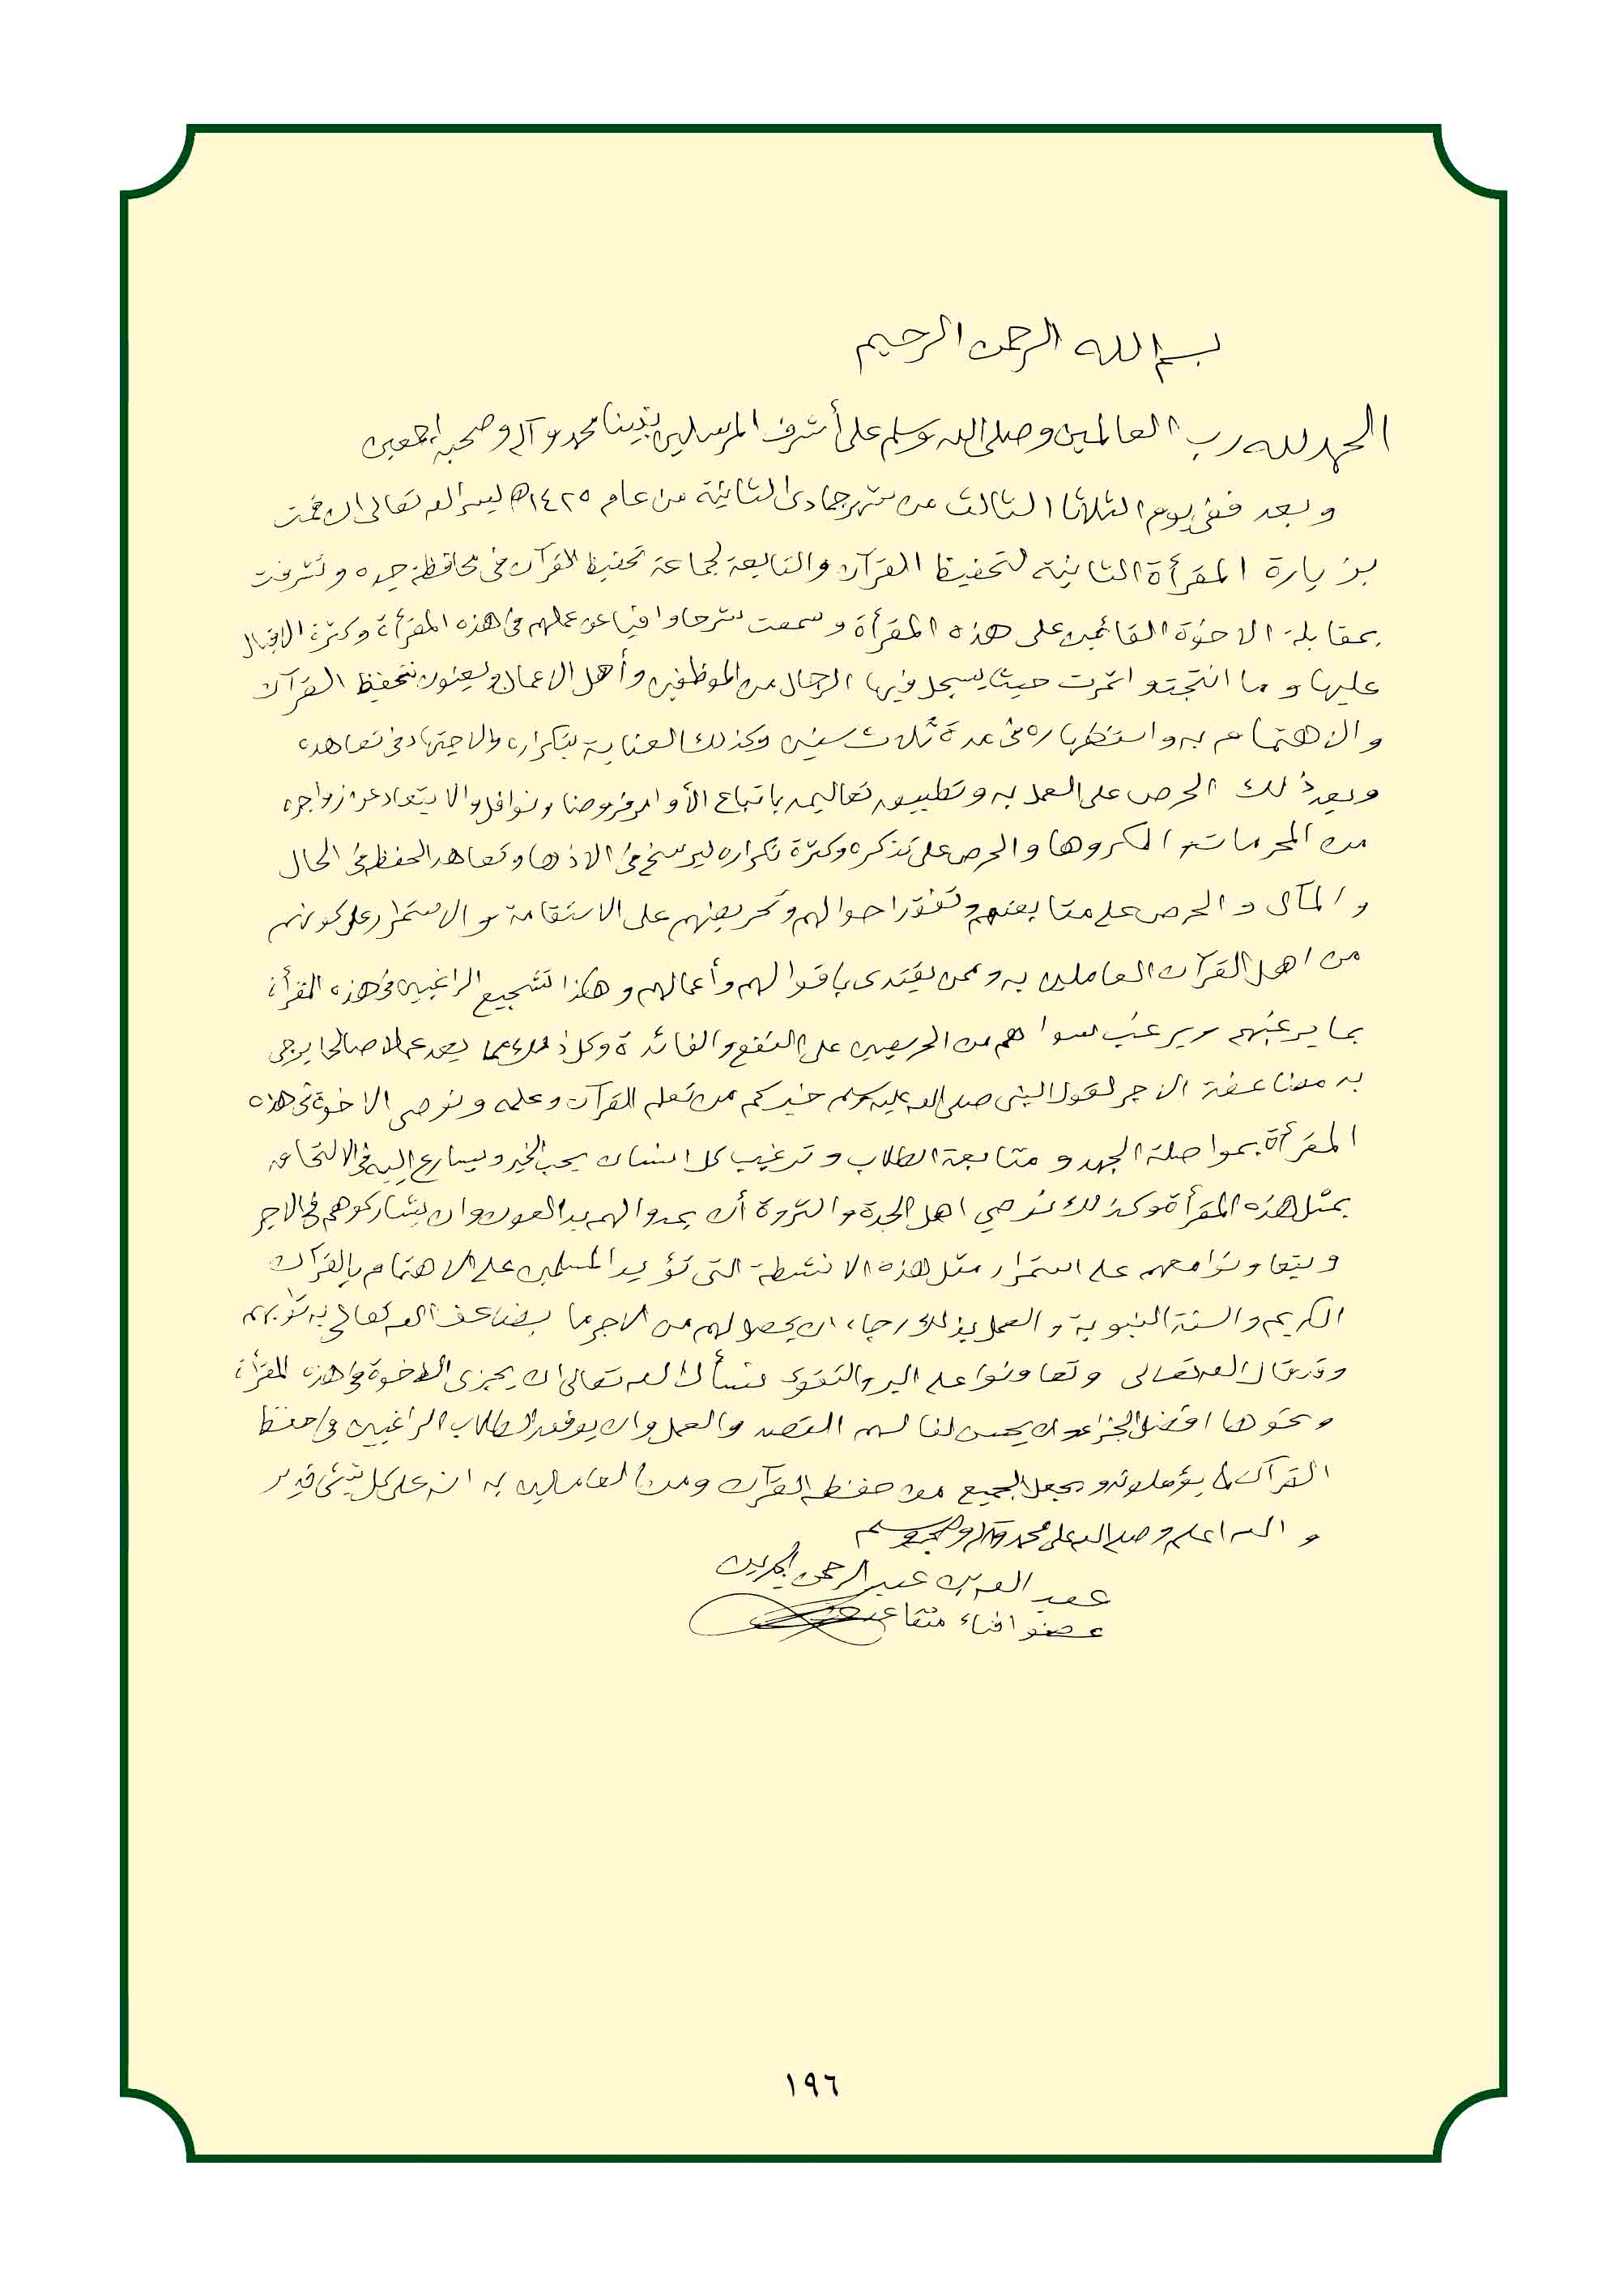 بسم الله الرحمن الرحيم
الحمد لله رب العالمين وصلى الله وسلم على أشرف المرسلين نبينا محمد وآله وصحبه اجمعين
وبعد ففي يوم الثلاثا الثالث من شهر جمادى الثانية من عام ١٤٢٥هـ يسر الله تعالى ان قمت
بزيارة المقرأة الثانية لتحفيظ القرآن والتابعة لجماعة تحفيظ القرآن في محافظة جده وتشرفت
بمقابلة الاخوة القائمين على هذه المقرأة وسمعت شرحا وافيا عن عملهم في هذه المقرأة وكثرة الاقبال
عليها وما انتجته واثمرت حيث يسجل فيها الرجال من الموظفين وأهل الاعمال ويعنون بتحفيظ القرآن
والاهتمام به واستظهاره في مدة ثلاث سنين وكذلك العناية بتكراره والاجتهاد في تعاهده
وبعد ذلك الحرص على العمل به وتطبيق تعاليمه باتباع الأوامر فروضا ونوافل والابتعاد عن زواجره
من المحرمات والمكروها والحرص على تذكره وكثرة تكراره ليرسخ في الاذها وتعاهد الحفظ في الحال
والمآل والحرص على متابعتهم وتفقد احوالهم وتحريضهم على الاستقامة والاستمرار على كونهم
من اهل القرآن العاملين به وممن يقتدى باقوالهم وأعمالهم وهكذا تشجيع الراغبين في هذه المقرأة
بما يرغبهم ويرغب سواهم من الحريصين على النفع والفائدة وكل ذلك مما يعد عملا صالحا يرجى
به مضاعفة الاجر لقول النبي صلى الله عليه وسلم خيركم من تعلم القرآن وعلمه ونوصي الاخوة في هذه
المقرأة بمواصلة الجهد ومتابعة الطلاب وترغيب كل انسان يحب الخير ويسارع إليه في الالتحاق
بمثل هذه المقرأة وكذلك نوصي اهل الجدة والثروة أن يمدوا لهم يد العون وان يشاركوهم في الاجر
ويتعاونوا معهم على استمرار مثل هذه الانشطة التي تؤيد المسلمين على الاهتمام بالقرآن
الكريم والسنة النبوية والعمل بذلك رجاء ان يحصل لهم من الاجر ما يضاعف الله تعالى به ثوابهم
وقد قال الله تعالى وتعاونوا على البر والتقوى فنسأل الله تعالى ان يجزى الاخوة في هذه المقرأة
ونحوها افضل الجزاء وان يحسن لنا لهم القصد والعمل وان يوفق الطلاب الراغبين في حفظ
القرآن لما يؤملونه ويجعل الجميع من حفظة القرآن ومن العاملين به انه على كل شيئ قدير
والله اعلم وصلى الله على محمد وآله وصحبه وسلم
عبد الله بن عبد الرحمن الجبرين
عضو افتاء متقاعد
١٩٦